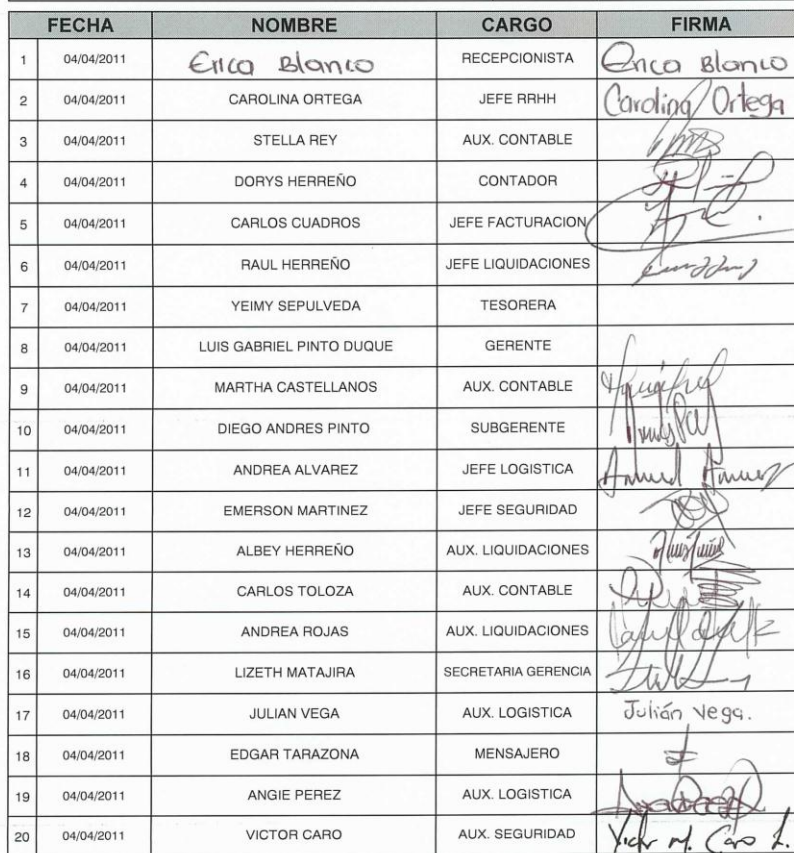 FECHA NOMBRE CARGO FIRMA
1 04/04/2011 Erica Blanco RECEPCIONISTA Erica Blanco
2 04/04/2011 CAROLINA ORTEGA JEFE RRHH Carolina Ortega
3 04/04/2011 STELLA REY AUX. CONTABLE
4 04/04/2011 DORYS HERREÑO CONTADOR
5 04/04/2011 CARLOS CUADROS JEFE FACTURACION
6 04/04/2011 RAUL HERREÑO JEFE LIQUIDACIONES
7 04/04/2011 YEIMY SEPULVEDA TESORERA
8 04/04/2011 LUIS GABRIEL PINTO DUQUE GERENTE
9 04/04/2011 MARTHA CASTELLANOS AUX. CONTABLE
10 04/04/2011 DIEGO ANDRES PINTO SUBGERENTE
11 04/04/2011 ANDREA ALVAREZ JEFE LOGISTICA
12 04/04/2011 EMERSON MARTINEZ JEFE SEGURIDAD
13 04/04/2011 ALBEY HERREÑO AUX. LIQUIDACIONES
14 04/04/2011 CARLOS TOLOZA AUX. CONTABLE
15 04/04/2011 ANDREA ROJAS AUX. LIQUIDACIONES
16 04/04/2011 LIZETH MATAJIRA SECRETARIA GERENCIA
17 04/04/2011 JULIAN VEGA AUX. LOGISTICA Julián Vega.
18 04/04/2011 EDGAR TARAZONA MENSAJERO
19 04/04/2011 ANGIE PEREZ AUX. LOGISTICA
20 04/04/2011 VICTOR CARO AUX. SEGURIDAD Victor M. Caro L.